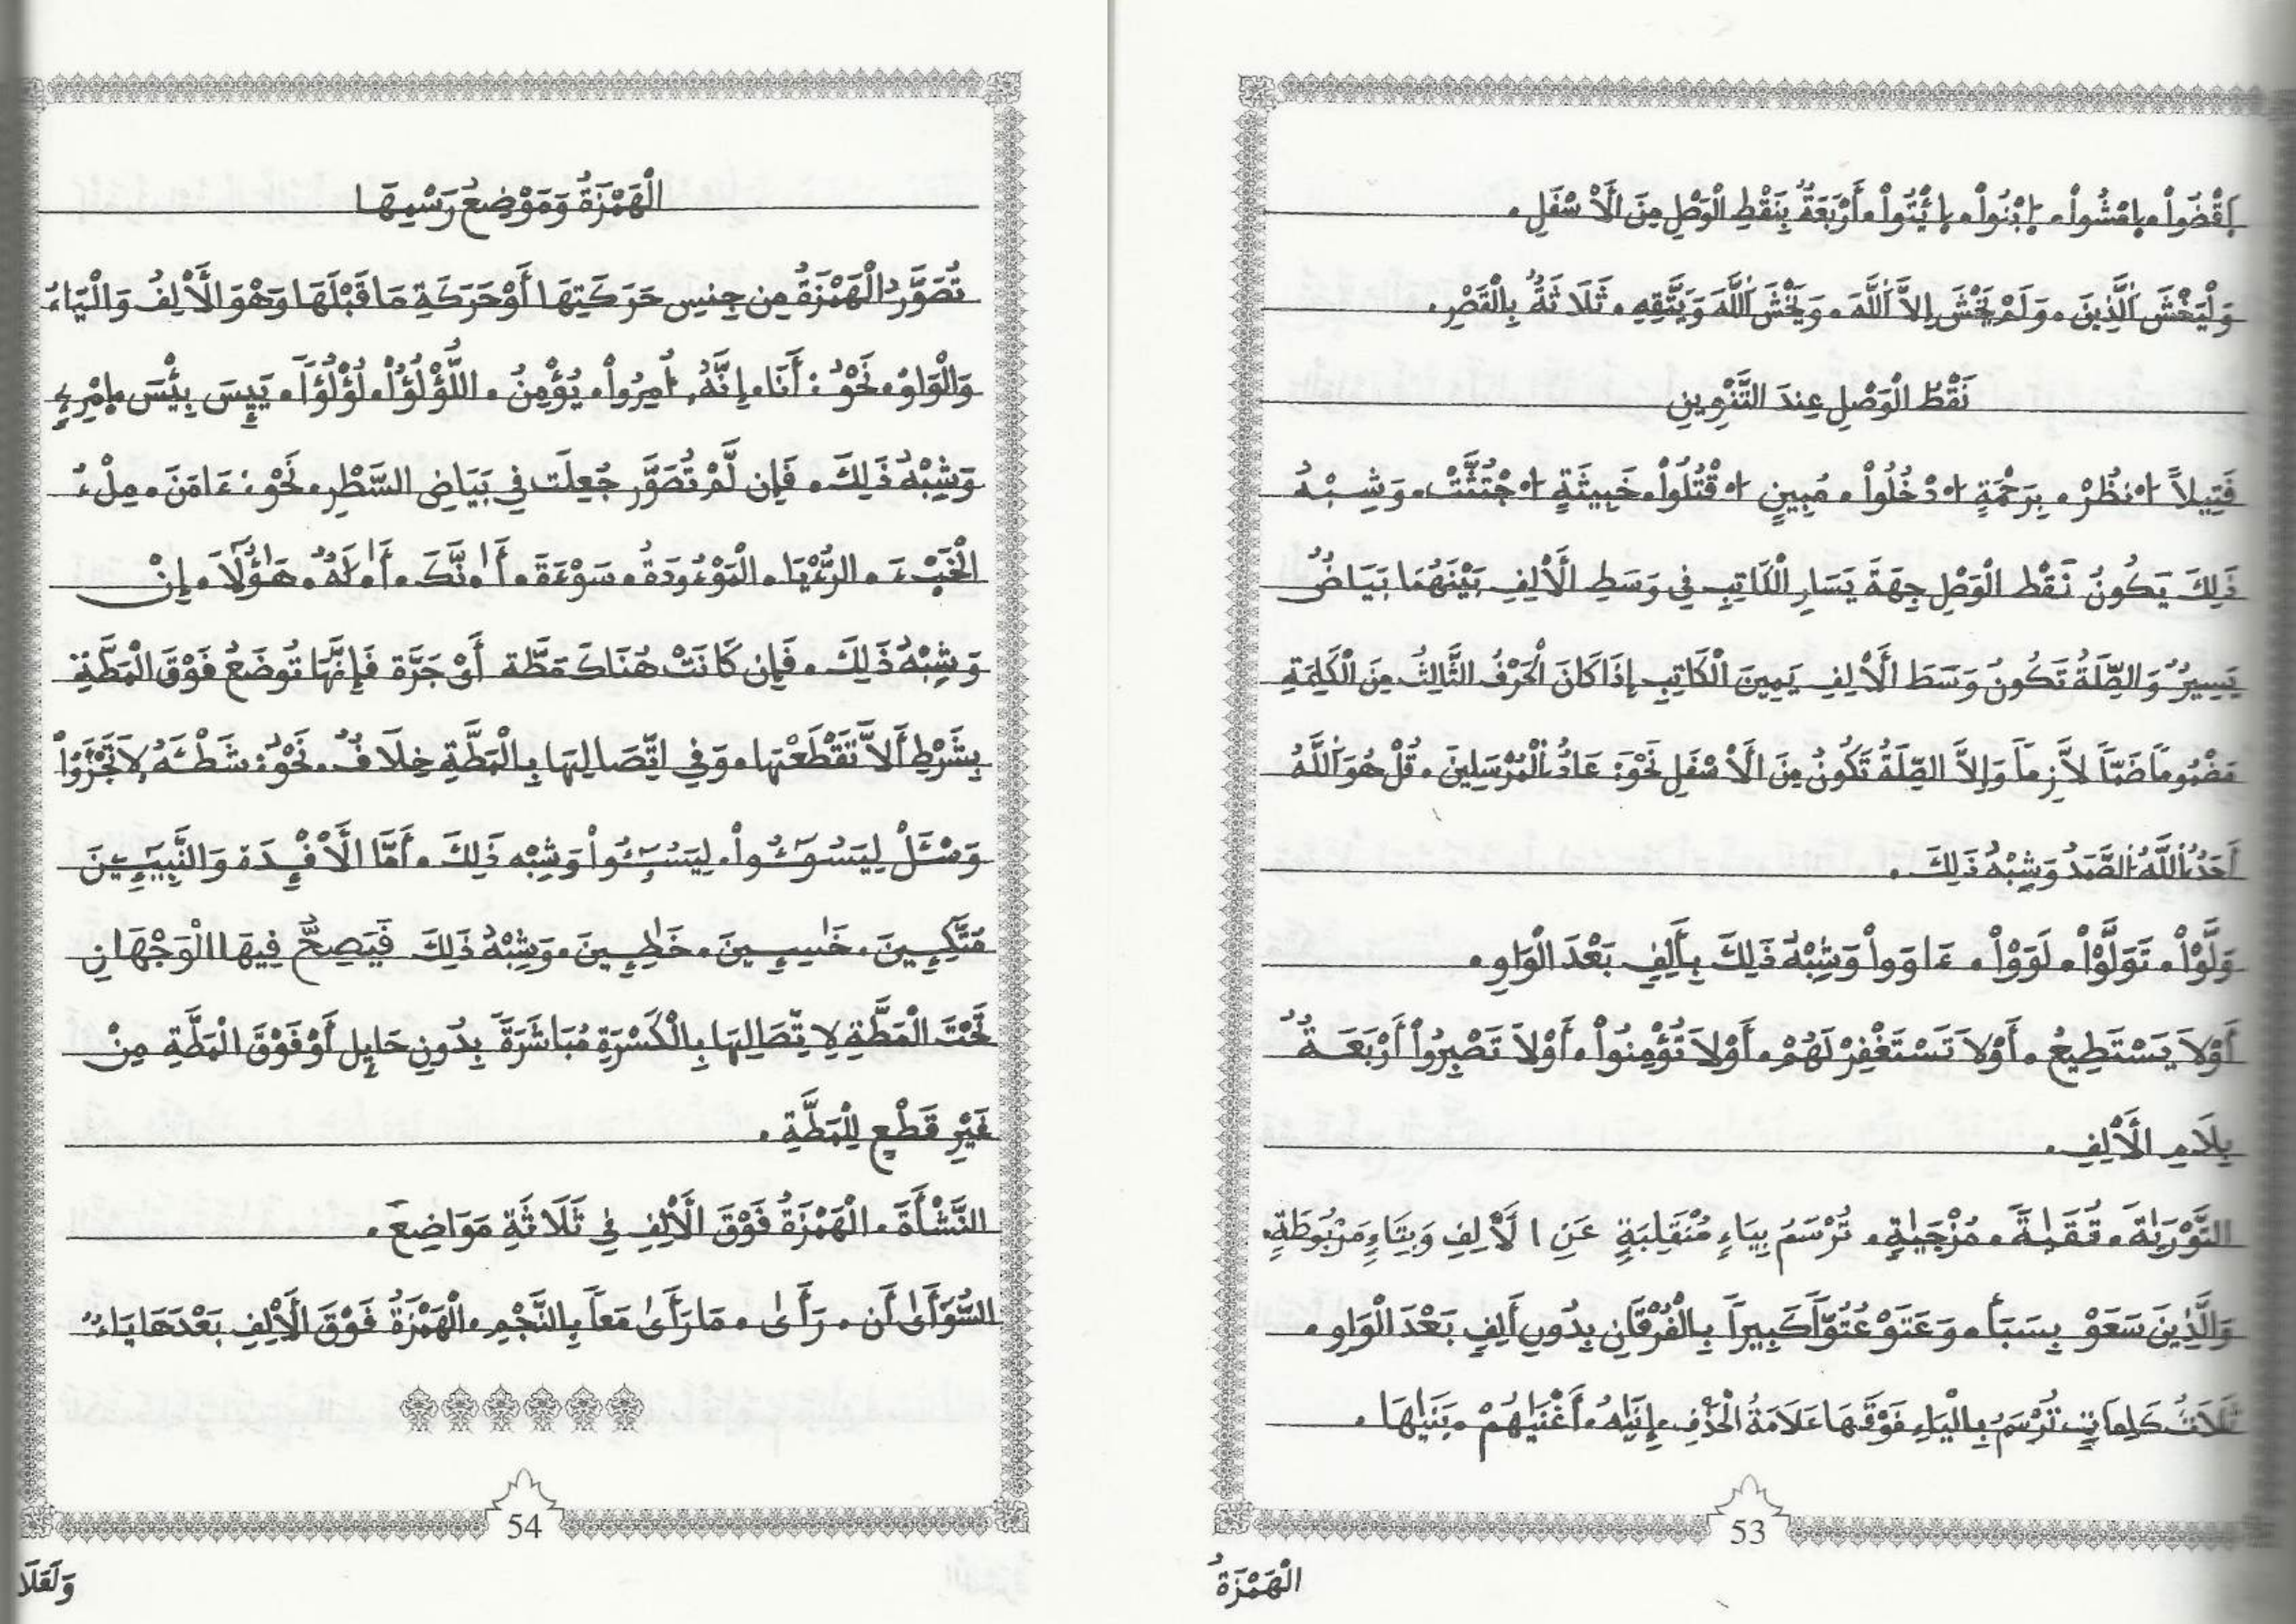 اِقْضُواْ. اِمْشُواْ. اِبْنُواْ. اِئْتُواْ. أَرْبَعَةٌ بِنَقْطِ الْوَصْلِ مِنَ الَأسْفَلِ.
وَلْيَخْشَ اَلَّذِينَ. وَلَمْ يَخْشَ إِلاَّ اَللَّهَ. وَيَخْشَ اَللَّهَ وَيَتَّقِهِ. ثَلَاثَةٌ بِالْقَصْرِ.
نَقْطُ الْوَصْلِ عِندَ التَّنْوِينِ
فَتِيلاً اُنظُرْ. بِرَحْمَةٍ اُدْخُلُواْ. مُبِينٍ اُقْتُلُواْ. خَبِيثَةٍ اُجْتُثَّتْ. وَشِبْهُ
ذَلِكَ يَكُونُ نَقْط الْوَصْلِ جِهَةَ يَسَارِ الْكَاتِبِ فِي وَسَطِ الَألِفِ بَيْنَهُمَا بَيَاضٌ
يَسِيرٌ وَالصِّلَةُ تَكُونُ وَسَطَ الَألِفِ يَمِينَ الْكَاتِبِ إِذَا كَانَ الْحَرْفُ الثَّالِثُ مِنَ الْكَلِمَةِ
مَضْمُوماً ضَمّاً لاَّزِماً وَإِلاَّ الصِّلَةُ تَكُونُ مِنَ الَأسْفَلِ نَحْوَ: عَادٌ اِلْمُرْسَلِينَ. قُلْ هُوَ اَللَّهُ
أَحَدٌ اِللَّهُ اُلصَّمَدُ وَشِبْهُ ذَلِكَ.
وَلَّوْاْ. تَوَلَّوْاْ. لَوَوْاْ. ءَاوَواْ وَشِبْهُ ذَلِكَ بِأَلِفٍ بَعْدَ الْوَاوِ.
أَوْلاَ يَسْتَطِيعُ. أَوْلاَ تَسْتَغْفِرْ لَهُمْ. أَوْلاَ تُؤْمِنُواْ. أَوْلاَ تَصْبِرُواْ أَرْبَعَةٌ
بِلَامِ الَألِفِ.
التَّوْرَيٰةَ. تُقَيٰةً. مُزْجَيٰةٍ. تُرْسَمُ بِيَاءٍ مُنْقَلِبَةٍ عَنِ الَألِفِ وَبِتَاءٍ مَرْبُوطَةٍ.
وَالَّذِينَ سَعَوْ بِسَبَأ. وَعَتَوْ عُتُوّاً كَبِيراً بِالْفُرْقَانِ بِدُونِ أَلِفٍ بَعْدَ الْوَاوِ.
ثَلَاثُ كَلِمَاتٍ تُرْسَمُ بِالْيَاءِ فَوْقَهَا عَلَامَةُ الْحَذْفِ. إِنَيٰهُ. أَغْنَيٰهُمْ. بَنَيٰهَا.
53
الْهَمْزَةُ
الْهَمْزَةُ وَمَوْضِعُ رَسْمِهَا
تُصَوَّرُ الْهَمْزَةُ مِن جِنسِ حَرَكَتِهَا أَوْ حَرَكَةِ مَا قَبْلَهَا وَهْوَ الَألِفُ وَالْيَاءُ
وَالْوَاوُ. نَحْوُ: أَنَا. إِنَّهُ. اُمِرُواْ. يُؤْمِنُ. اللُّؤْلُؤُاْ. لُؤْلُؤاً. يَيِسَ بِئْسَ. اِمْرِئٍ
وَشِبْهُ ذَلِكَ. فَإِن لَّمْ تُصَوَّر جُعِلَت فِي بَيَاضِ السَّطْرِ. نَحْوَ: ءَامَنَ. مِلْءُ
الْخَبْءَ. الرُّءْيَا. الْمَوْءُودَةُ. سَوْءَةَ. أَا۟نَّكَ. أَا۟لَهٌ. هَؤُلَا. إِنْ
وَشِبْهُ ذَلِكَ. فَإِن كَانَتْ هُنَاكَ مَطَّة أَوْ جَرَّة فَإِنَّهَا تُوضَعُ فَوْقَ الْمَطَّةِ
بِشَرْطِ أَلاَّ تَقْطَعْهَا. وَفِي اتِّصَالِهَا بِالْمَطَّةِ خِلَافٌ. نَحْوُ: شَطْـَٔهُ. لاَ تَجْـَٔرُواْ
وَسْـَٔلْ لِيَسُـُٔواْ. لِيَسُـُٔواْ وَشِبْه ذَلِكَ. أَمَّا الَأفْـِٕدَة وَالنَّبِيـِٕينَ
مُتَّكِـِٕينَ. خَاسِـِٕينَ. خَاطِـِٕينَ. وَشِبْهُ ذَلِكَ فَيَصِحُّ فِيهَا الْوَجْهَانِ
تَحْتَ الْمَطَّةِ لِاتِّصَالِهَا بِالْكَسْرَةِ مُبَاشَرَةً بِدُونِ حَايِلٍ أَوْ فَوْقَ الْمَطَّةِ مِنْ
غَيْرِ قَطْعٍ لِلْمَطَّةِ.
النَّشْأَةَ. الْهَمْزَةُ فَوْقَ الَألِفِ فِي ثَلَاثَةِ مَوَاضِعَ.
السُّوَأَىٰ أَن. رَأَىٰ. مَا رَأَىٰ مَعاً بِالنَّجْمِ. الْهَمْزَةُ فَوْقَ الَألِفِ بَعْدَهَا يَاءٌ
54
وَلَعَلَا